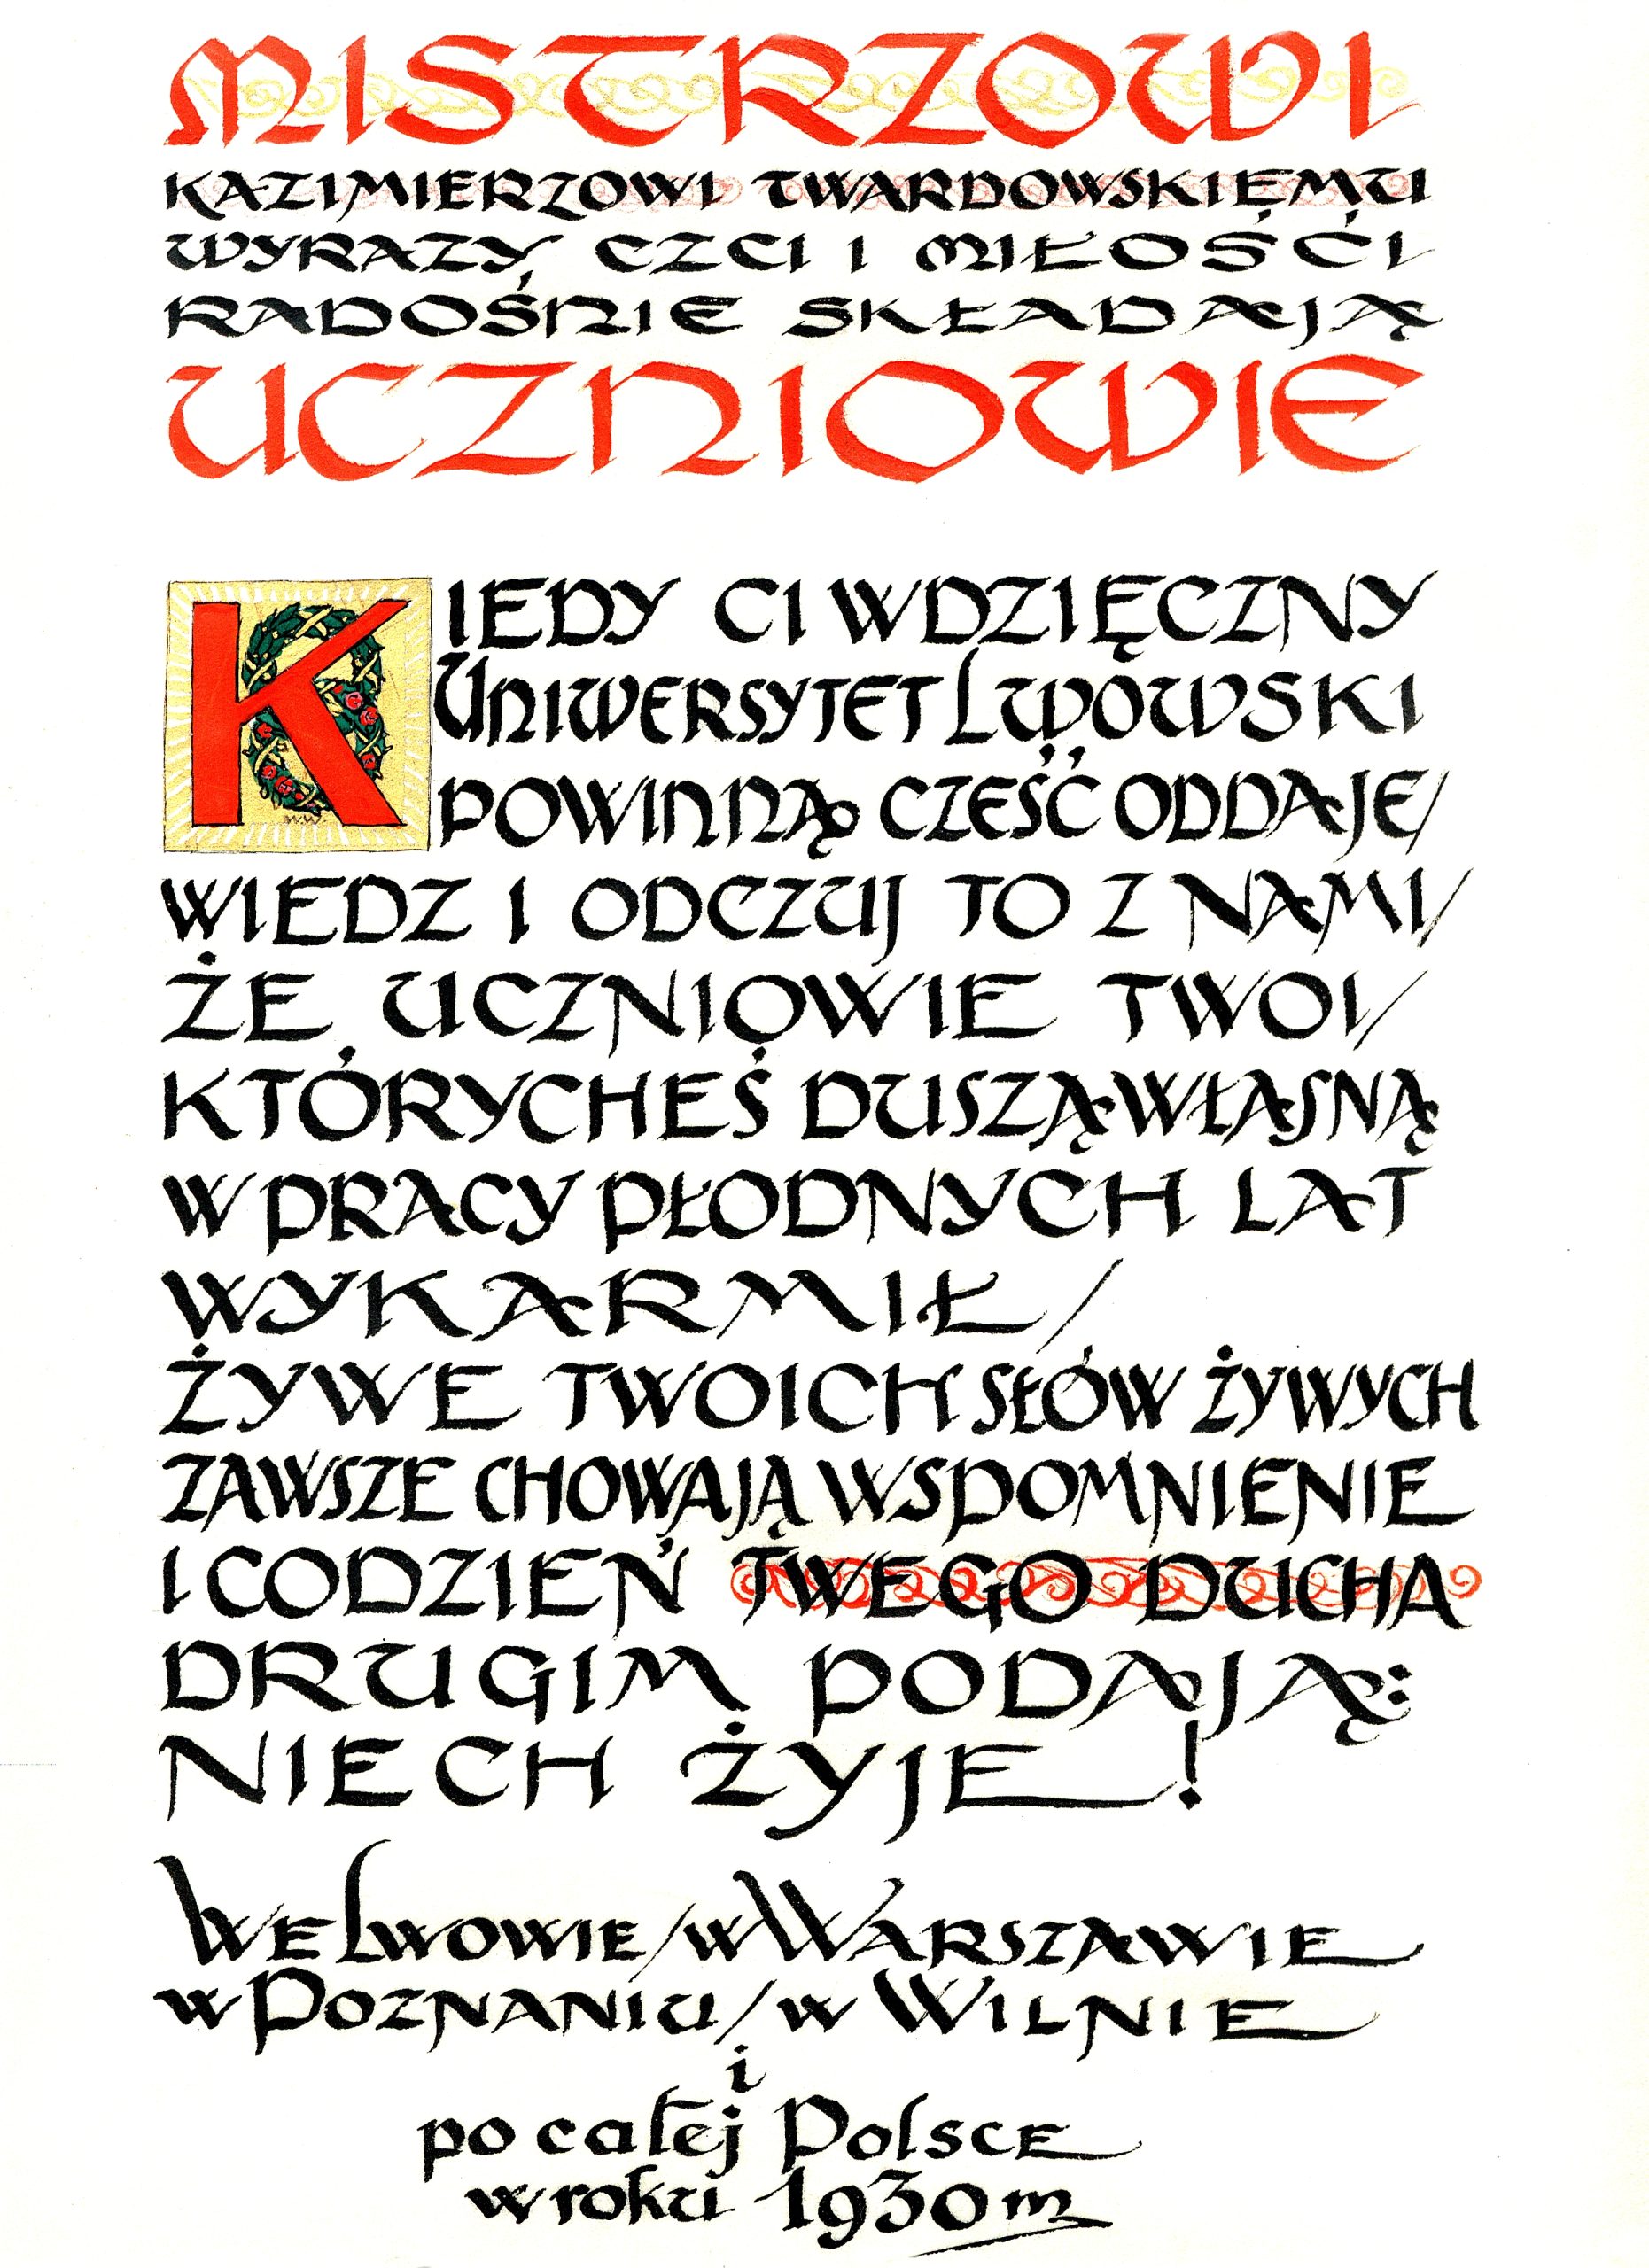 MISTRZOWI
KAZIMIERZOWI TWARDOWSKIEMU
WYRAZY CZCI I MIŁOŚCI
RADOŚNIE SKŁADAJĄ
UCZNIOWIE
KIEDY CI WDZIĘCZNY
UNIWERSYTET LWOWSKI
POWINNĄ CZEŚĆ ODDAJE/
W.W.
WIEDZ I ODCZUJ TO Z NAMI/
ŻE UCZNIOWIE TWOI/
KTÓRYCHEŚ DUSZĄ WŁASNĄ
W PRACY PŁODNYCH LAT
WYKARMIŁ/
ŻYWE TWOICH SŁÓW ŻYWYCH
ZAWSZE CHOWAJĄ WSPOMNIENIE
I CODZIEŃ TWEGO DUCHA
DRUGIM PODAJĄ:
NIECH ŻYJE!
WE LWOWIE/W WARSZAWIE
W POZNANIU/W WILNIE
i
po całej Polsce
w roku 1930m